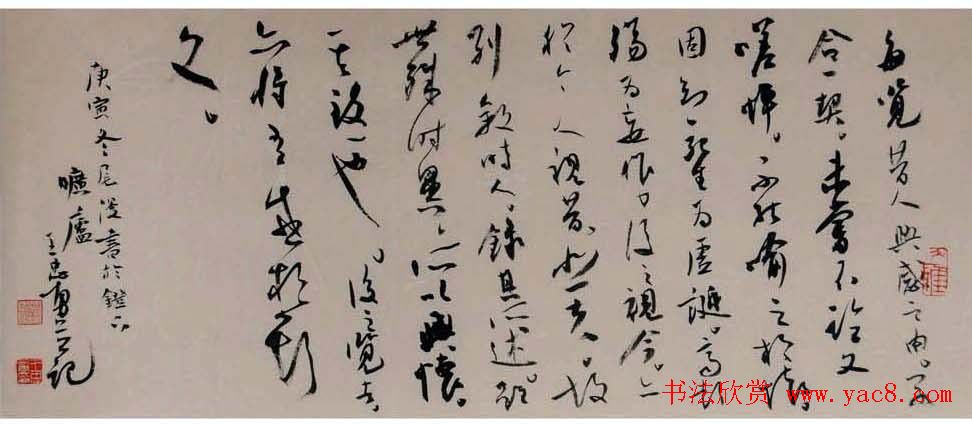 每覽昔人興感之由。若
合一契。未嘗不臨文
嗟悼。不能喻之於懷。
固知一死生為虛誕。齊彭
殤為妄作。後之視今。亦
猶今人視昔。悲夫。故
列敘時人。錄其所述。雖
世殊時異。所以興懷。
其致一也。後之覽者。
亦將有感於斯
文。
庚寅冬尾漫書於鐙下
曠廬
王忠勇並記
书法欣赏 www.yac8.com